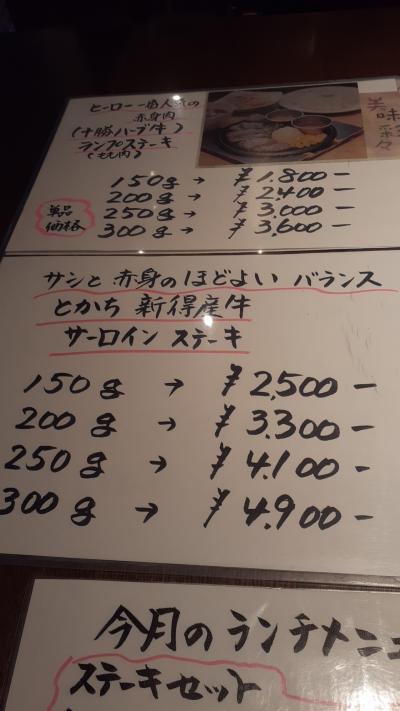 ヒーロー 一番人気の
赤身肉
(十勝ハーブ牛)
ランプステーキ
(もも肉)
美味彩々
単品
価格
150g → ¥1.800-
200g → ¥2,400-
250g → ¥3,000-
300g → ¥3,600-
サシと赤身のほどよいバランス
とかち 新得産牛
サーロインステーキ
150g → ¥2,500-
200g → ¥3.300-
250g → ¥4.100-
300g → ¥4.900-
今月のランチメニュ
ステーキセット